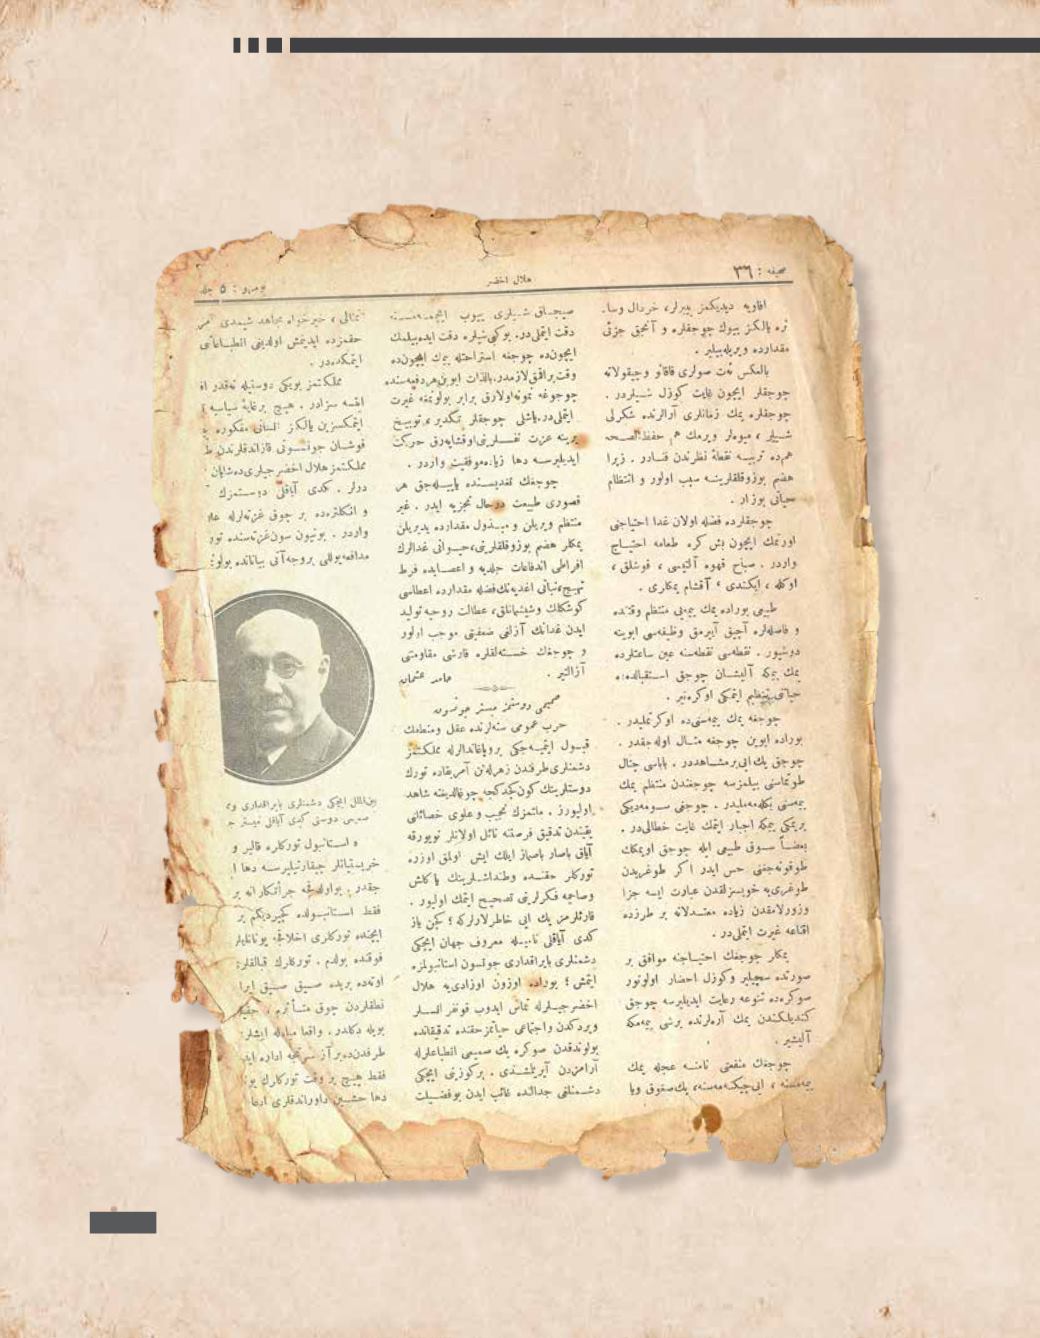 صحیفه : ٣٦
هلال اخضر
افاویه دیدیکمز بیبرلر، خردال وسا-
ئره یالکز بیوك چوجقلره و آنجق جزئی
مقدارده ویریله بیلیر .
بالعکس
چوجقلر ایچون غایت کوزل شیلردر .
چوجقلره یمك زمانلری آرالرنده شکرلی
شیلر ، میوه‌لر ویرمك هم حفظ الصحه
هم‌ده تربیه نقطهٔ نظرندن فنادر . زیرا
هضم بوزوقلقلرینه سبب اولور و انتظام
حیاتی بوزار .
چوجقلرده فضله اولان غدا احتیاجنی
اورتمك ایچون بش کره طعامه احتیاج
واردر . صباح قهوه آلتیسی ، قوشلق ،
اوکله ، ایکندی ، آقشام یمکلری .
طبیعی بوراده یمك یمه‌یی منتظم وقتنده
و فاصله‌لره آچیق آییرمق وظیفه‌سی ابوینه
دوشیور . نقطه‌سی نقطه‌سنه عین ساعتلرده
یمك یمکه آلیشان چوجق استقبالده‌ده
حیاتی تنظیم ایتمکی اوکره‌نیر .
چوجغه یمك یمه‌سنی‌ده اوکرتملیدر .
بوراده ابوین چوجغه مثال اوله‌جقدر .
چوجق پك ایی بر مشاهددر . باباسی چتال
طوتماسنی بیلمزسه چوجغندن منتظم یمك
یمه‌سنی بکله‌مه‌ملیدر . چوجغی سومه‌دیکی
بر یمکی یمکه اجبار ایتمك غایت خطالی‌در .
بعضاً سوق طبیعی ایله چوجق او یمکك
طوقونه‌جغنی حس ایدر اکر طوغریدن
طوغری‌یه خویسزلقدن عبارت ایسه جزا
وزورلامقدن زیاده معتدلانه بر طرزده
اقناعه غیرت ایتملی‌در .
یمکلر چوجغك احتیاجنه موافق بر
صورتده سچیلیر وکوزل احضار اولونور
سوکره‌ده تنوعه رعایت ایدیلیرسه چوجق
کندیلکندن یمك آره‌لرنده برشی یمه‌مکه
آلیشیر .
چوجغك منفعتی نامنه عجله یمك
یمه‌مسنه ، ایی چیکنه‌مه‌سنه، پك صغوق ویا
صیجاق شیلری ییوب ایچمه‌مسنه
دقت ایتملی‌در. بو کبی شیلره دقت ایده‌بیلمك
ایچون‌ده چوجغه استراحتله یمك ایچون‌ده
وقت براقمق لازمدر. بالذات ابوین هر دفعه‌سنده
چوجوغه نمونه اولارق برابر بولونمغه غیرت
ایتملی‌در. یاشلی چوجقلر تکدیر و توبیخ
یرینه عزت نفسلرینی اوقشایه‌رق حرکت
ایدیلیرسه دها زیاده موفقیت واردر .
چوجغك تغدیسنده یاپیله‌جق هر
قصوری طبیعت درحال تجزیه ایدر . غیر
منتظم ویریلن و مبذول مقدارده یدیریلن
یمکلر هضم بوزوقلقلرینی، حیوانی غدالرك
افراطی اندفاعات جلدیه و اعصابده فرط
تهیج، نباتی اغدیه‌نك فضله مقدارده اعطاسی
کوشکلك وشیشمانلق، عطالت روحیه تولید
ایدن غدانك آزلغی ضعفیتی موجب اولور
و چوجغك خسته‌لقلره قارشی مقاومتی
آزالتیر .
حامد عثمان
صمیمی دوستمز میستر جونسون
حرب عمومی سنه‌لرنده عقل ومنطقك
قبول ایتمیه‌جکی پروپاغاندالرله مملکتمز
دشمنلری طرفندن زهرله‌نن آمریقاده تورك
دوستلرینك کون کچدکجه چوغالدیغنه شاهد
اولیورز . ملتمزك نجیب و علوی خصائلنی
یقیندن تدقیق فرصتنه نائل اولانلر نویورقه
آیاق باصار باصماز ایلك ایش اولمق اوزره
تورکلر حقنده وطنداشلرینك یاکلش
وصاچمه فکرلرینی تصحیح ایتمك اولیور .
قارئلرمز پك ایی خاطرلارلرکه ؛ کچن یاز
کدی آیاقلی نامیله معروف جهان ایچکی
دشمنلری بایراقداری جونسون استانبولمزه
ایتمش ؛ بوراده اوزون اوزادی‌یه هلال
اخضرجیلرله تماس ایدوب قونفرانسلر
ویردکدن واجتماعی حیاتمز حقنده تدقیقاتده
بولوندقدن صوکره پك صمیمی انطباعلرله
آرامزدن آیریلمشدی . بر کوزینی ایچکی
دشمنلغی جدالنده غائب ایدن بو فضیلت
تمثالی ، خیرخواه مجاهد شیمدی
حقمزده ایدینمش اولدیغی انطباعاتنی
ایتمکده‌در .
مملکتمز بویکی دوستیله نه‌قدر
سزادر . هیچ بر غایهٔ سیاسیه
ایتمکسزین یالکز انسانی مفکوره
قوشان جونسونی قازاندقلرندن
مملکتمز هلال اخضرجیلری‌ده شایان
درلر . کدی آیاقلی دوستمزك
و انکلتره‌ده بر چوق غزته‌لرله
واردر . بونیون سون غزته‌سنده
مدافعه یوللی بروجه آتی بیاناتده
بین‌الملل ایچکی دشمنلری بایراقداری
صمیمی دوستی کدی آیاقلی میستر
« استانبول تورکلره قالیر و
خریستیانلر چیقارتیلیرسه دها
جقدر . بو اولدقجه جرأتکارانه بر
فقط استانبولده کچیردیکم
ایچنده تورکلری اخلاقجه یونانلیلر
فوقنده بولدم . تورکلرك قباللقلر
اوته‌ده بریده صیق صیق
نطقلردن چوق متأثرم .
بویله دکلدر . واقعا مبادله ایشلر
طرفندن
فقط هیچ بر وقت تورکلرك
دها داوراندقلری